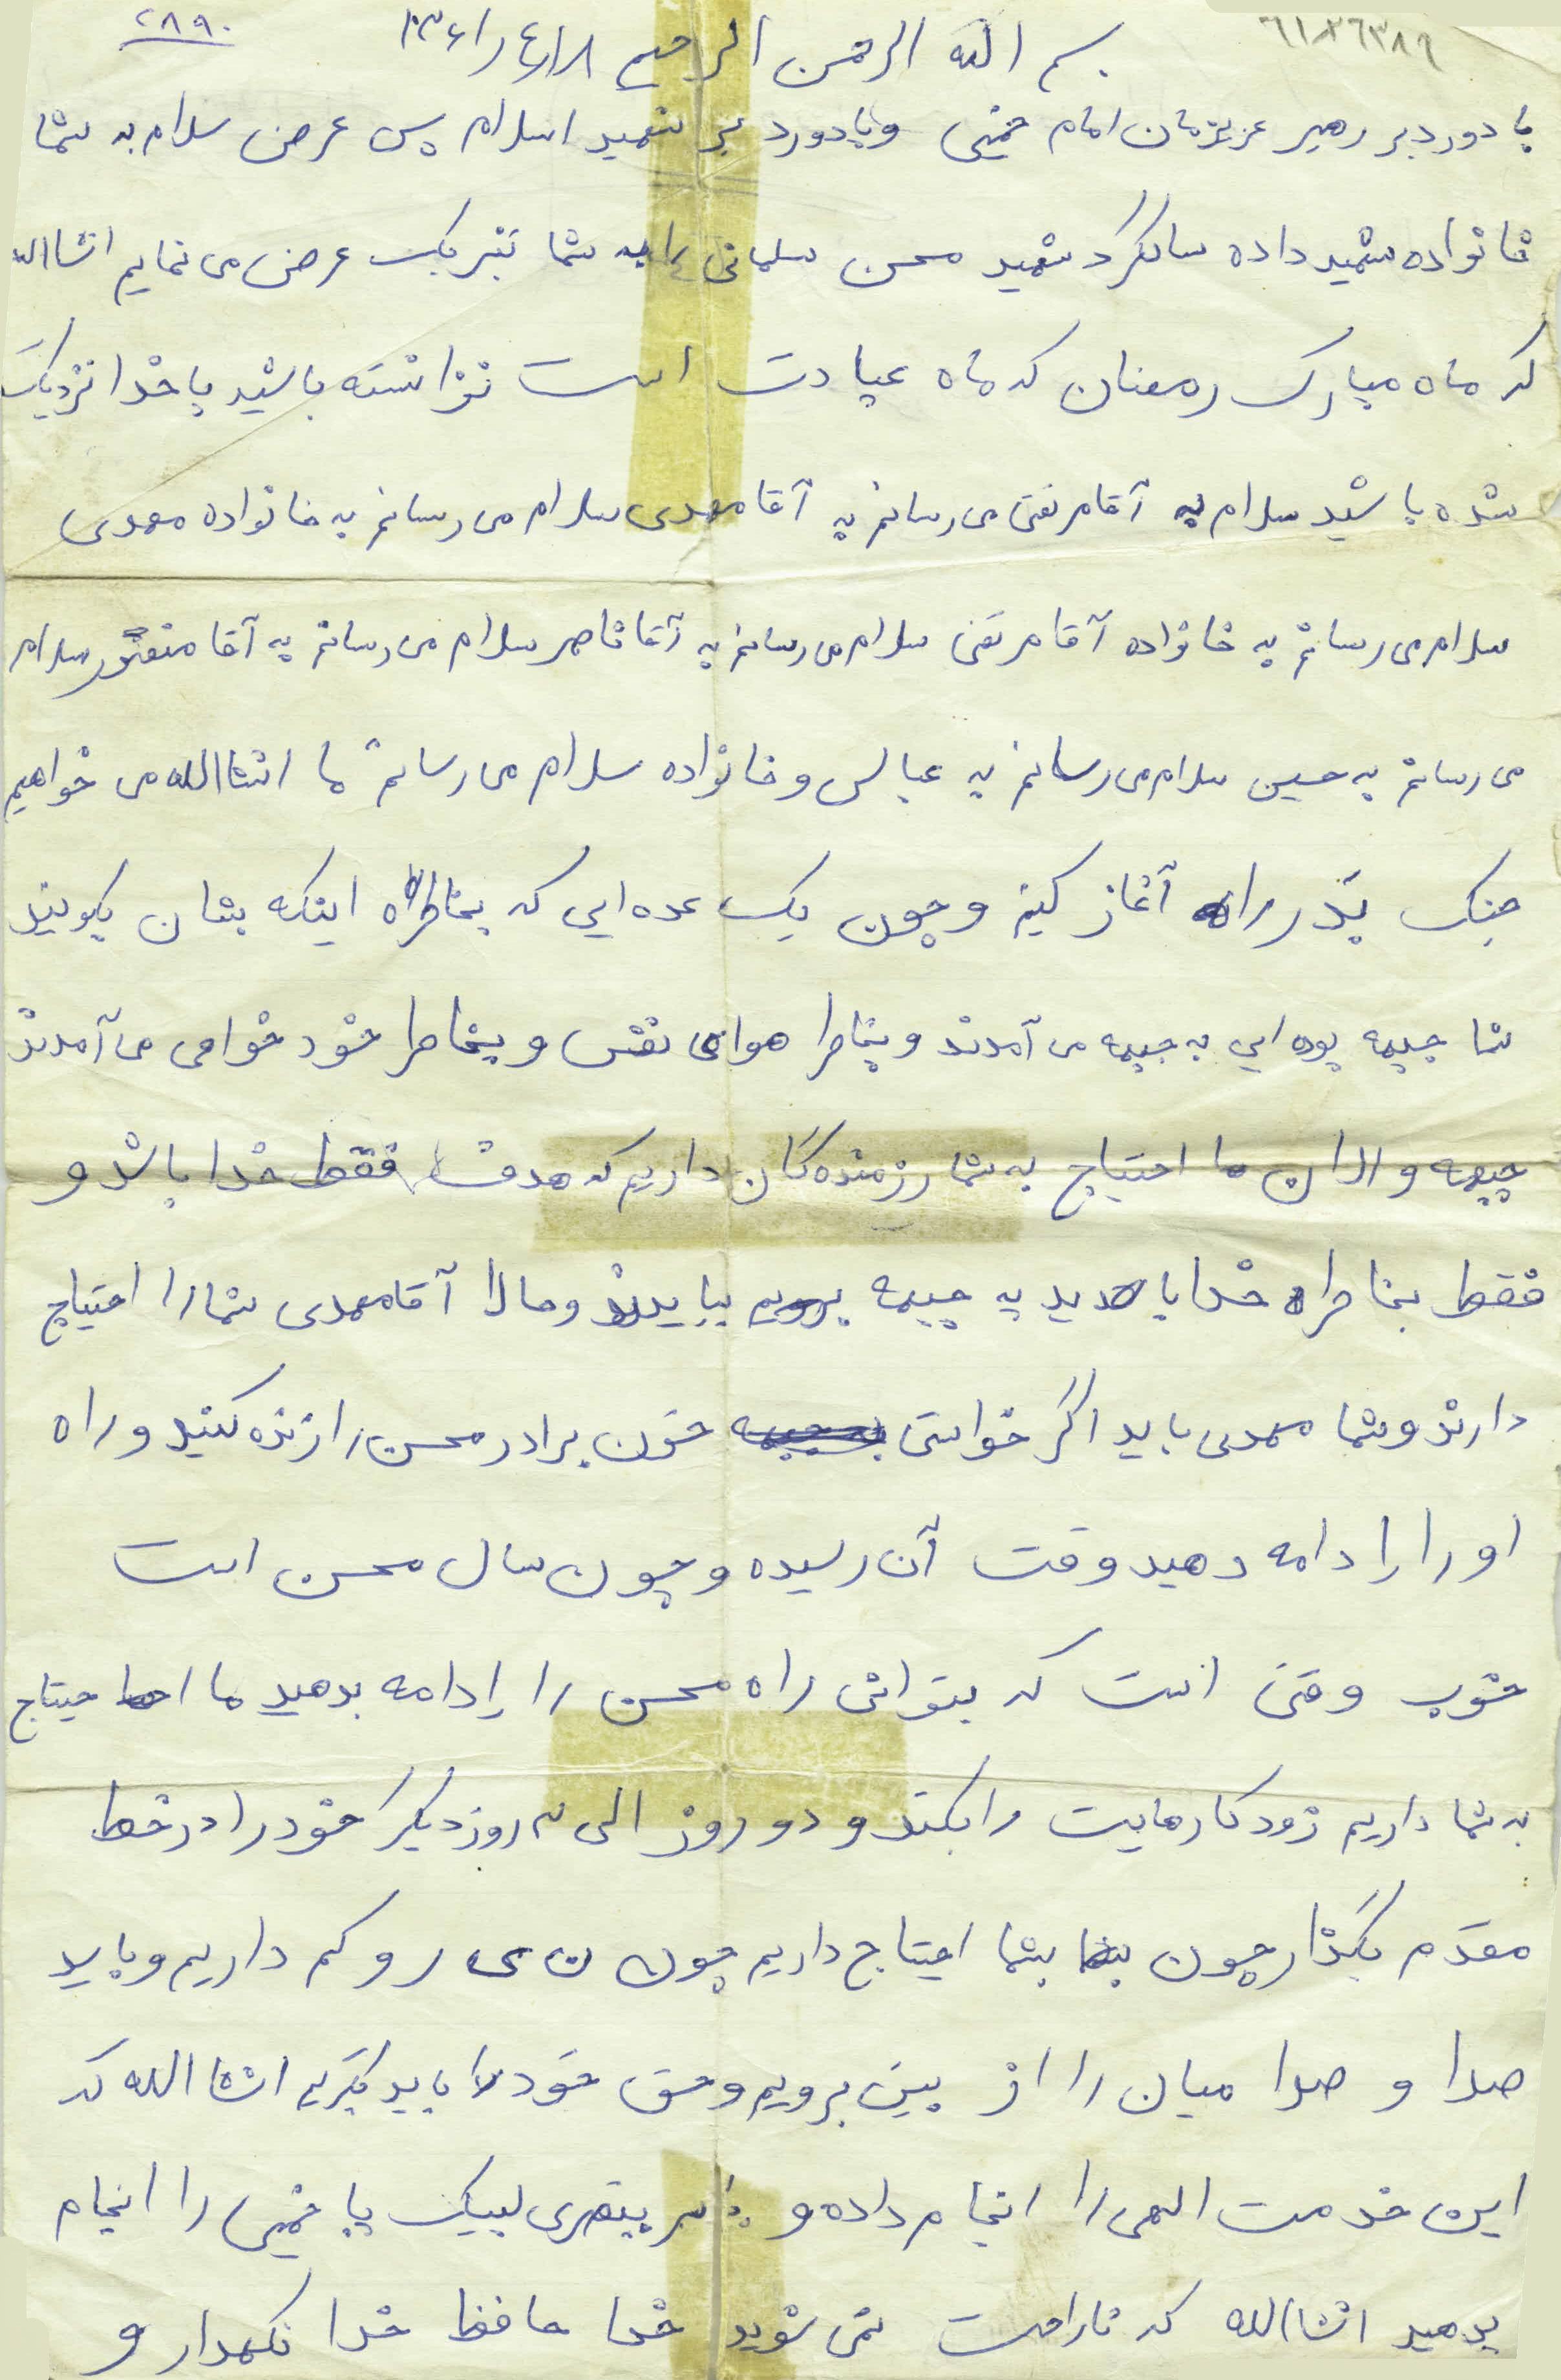 ۶۱۸۲۶۳۸۹
بسم الله الرحمن الرحیم ۱۳۶۱/۴/۱۸ ۲۸۹۰
با دورد بر رهبر عزیزمان امام خمینی و با دورد بر شهید اسلام پس عرض سلام به شما
خانواده شهید داده سالگرد شهید محسن سلمانی را به شما تبریک عرض می نمایم انشاالله
که ماه مبارک رمضان که ماه عبادت است توانسته باشید با خدا نزدیک
شده باشید سلام به آقا مرتضی می رسانم به آقا مهدی سلام می رسانم به خانواده مهدی
سلام می رسانم به خانواده آقا مرتضی سلام می رسانم به آقا ناصر سلام می رسانم به آقا سلام
می رسانم به حسین سلام می رسانم به عباس و خانواده سلام می رسانم ما انشاالله می خواهیم
جنگ بدر را آغاز کنیم و چون یک عده ایی که بخاطر اینکه بشان بگویند
شما جبهه بوده ایی به جبهه می آمدند و بخاطر هوای نفس و بخاطر خود خواهی می آمدند
جبهه و الان ما احتیاج به شما رزمنده گان داریم که هدف فقط خدا باشد و
فقط بخاطر خدا باید به جبهه بیایند و حالا آقا مهدی شما را احتیاج
دارند و شما مهدی باید اگر خواستی خون برادر محسن را زنده کنید و راه
او را ادامه دهید وقت آن رسیده و چون سال محسن است
خوب وقتی است که بتوانی راه محسن را ادامه بدهید ما احتیاج
به شما داریم زود کارهایت را بکند و دو روز الی سه روز دیگر خود را در خط
مقدم بگذار چون بشما احتیاج داریم چون ن ی رو کم داریم و باید
صدا و صدا میان را از بین برویم و حق خود را باید بگریم انشا الله که
این خدمت الهی را انجام داده و سر لبیک یا خمینی را انجام
بدهید انشاالله که ناراحت نمی شوید خدا حافظ خدا نگهدار و